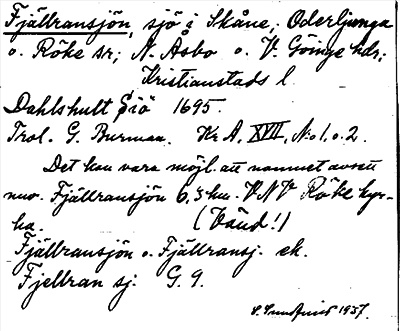 Fjällransjön, sjö i Skåne; Oderljunga
o. Röke sr; N. Åsbo o. V. Göinge hdr;
Kristianstads l.
Dahlshult Siö 1695.
Trol. G. Burman. Kr. A. XVII, No 1, o. 2.
Det kan vara möjl. att namnet avsett
nuv. Fjällransjön 6,3 km. VNV Röke kyr-
ka. (Vänd!)
Fjällransjön o. Fjällransj. ek.
Fjellran sj. G. 9.
S. Sundquist 1937.